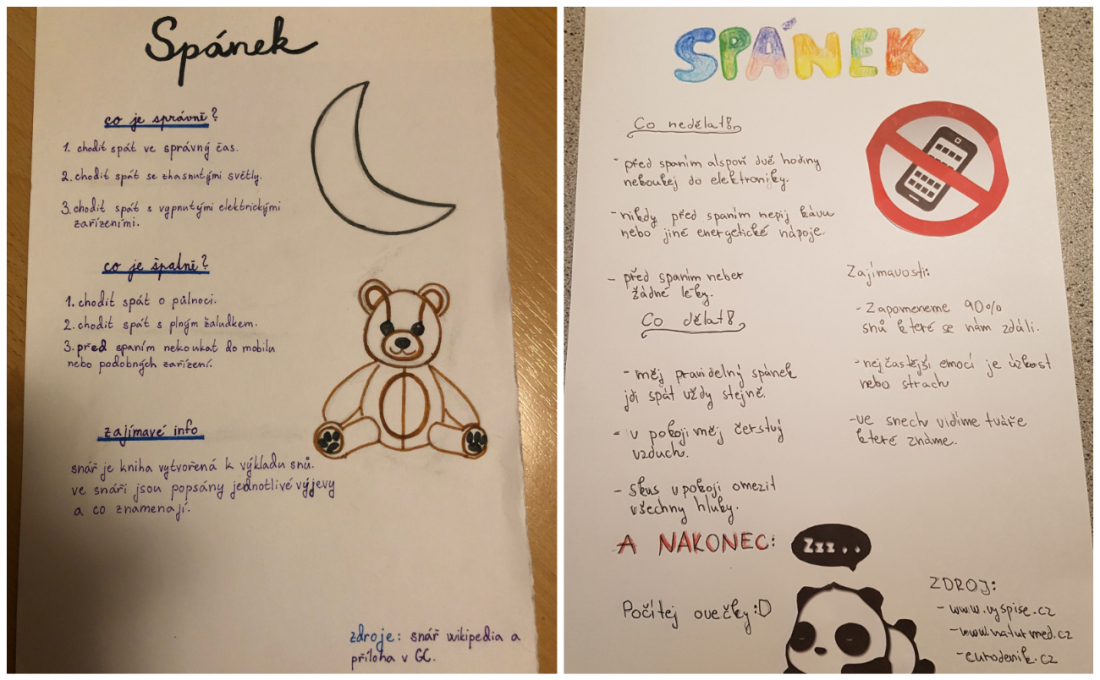 Spánek
co je správně?
1. chodit spát ve správný čas.
2. chodit spát se zhasnutými světly.
3. chodit spát s vypnutými elektrickými
zařízeními.
co je špatně?
1. chodit spát o půlnoci.
2. chodit spát s plným žaludkem.
3. před spaním nekoukat do mobilu
nebo podobných zařízení.
zajímavé info
snář je kniha vytvořená k výkladu snů.
ve snáři jsou popsány jednotlivé výjevy
a co znamenají.
zdroje: snář wikipedia a
příloha v GC.
SPÁNEK
Co nedělat?
- před spaním alspoň dvě hodiny
nekoukej do elektroniky.
- nikdy před spaním nepij kávu
nebo jiné energetické nápoje.
- před spaním neber
žádné léky.
Co dělat?
- měj pravidelný spánek
jdi spát vždy stejně.
- v pokoji měj čerstvý
vzduch.
- skus v pokoji omezit
všechny hluky.
Zajímavosti:
- Zapomeneme 90%
snů které se nám zdáli.
- nejčastější emocí je úzkost
nebo strach
- ve snech vidíme tváře
které známe.
A NAKONEC:
Zzz..
Počítej ovečky :D
ZDROJ:
- www.vyspise.cz
- www.naturmed.cz
- eurodenik.cz